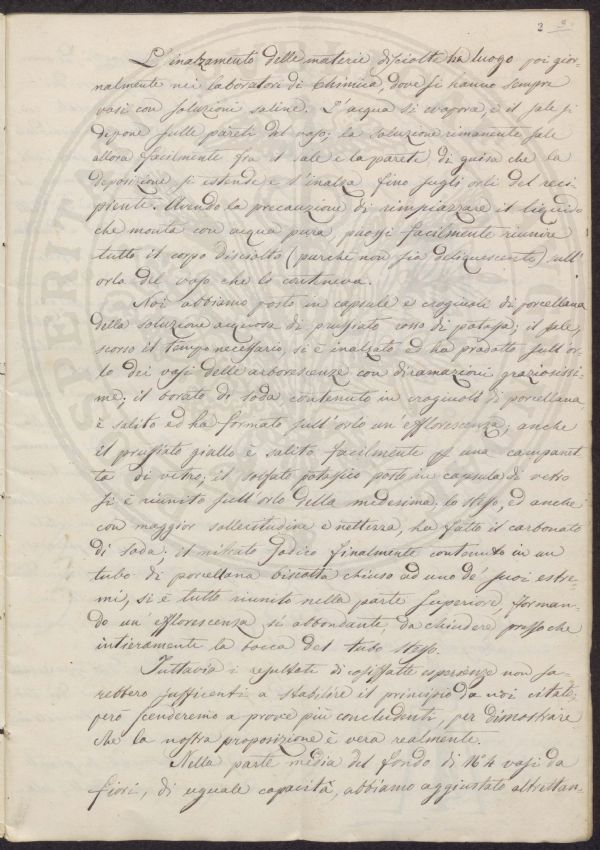 2
L'inalzamento delle materie disciolte ha luogo poi gior-
nalmente nei laboratori di Chimica, dove si hanno sempre
vasi con soluzioni saline. L'acqua si evapora, e il sale si
depone sulle pareti del vaso; la soluzione rimanente sale
allora facilmente fra il sale e la parete di guisa che la
deposizione si estende e s'inalza fino sugli orli del reci-
piente. Avendo la precauzione di rimpiazzare il liquido
che monta con acqua pura puossi facilmente riunire
tutto il corpo disciolto (purchè non sia deliquescente) sull'
orlo del vaso che lo conteneva.
Noi abbiamo posto in capsule e crogiuoli di porcellana
della soluzione acquosa di prussiato rosso di potassa; il sale,
scorso il tempo necessario, si è inalzato ed ha prodotto sull'or-
lo dei vasi delle arborescenze con diramazioni graziosissi-
me; il borato di soda contenuto in crogiuoli di porcellana,
è salito ed ha formato sull'orlo un'efflorescenza; anche
il prussiato giallo è salito facilmente su una campanet-
ta di vetro; il solfato potassico posto in capsula di vetro
si è riunito sull'orlo della medesima; lo stesso, ed anche
con maggior sollecitudine e nettezza, ha fatto il carbonato
di soda; il nitrato sodico finalmente contenuto in un
tubo di porcellana biscotta chiuso ad uno de' suoi estre-
mi, si è tutto riunito nella parte superiore, forman-
do un'efflorescenza sì abbondante, da chiudere pressochè
intieramente la bocca del tubo stesso.
Tuttavia i resultati di cosiffatte esperienze non sa-
rebbero sufficenti a stabilire il principio da noi citato;
però scenderemo a prove più concludenti, per dimostrare
che la nostra proposizione è vera realmente.
Nella parte media del fondo di N. 4 vasi da
fiori, di uguale capacità, abbiamo aggiustato altrettan-